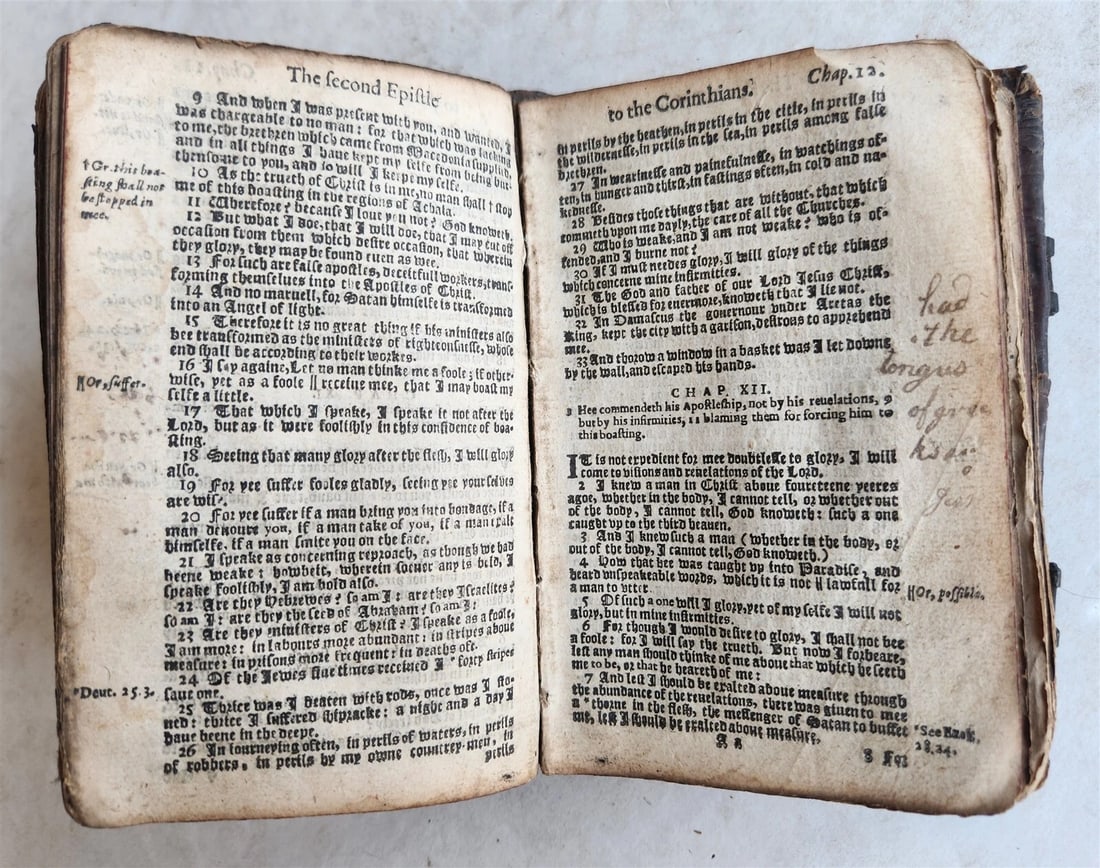 The second Epistle
9 And when I was present with you, and wanted, I
was chargeable to no man: for that which was lacking
to me, the brethren which came from Macedonia supplied,
and in all things I haue kept my selfe from being bur-
thensome to you, and so will I keepe my selfe.
10 As the trueth of Christ is in me, no man shall † stop
me of this boasting in the regions of Achaia.
11 Wherefore? because I loue you not? God knoweth.
12 But what I doe, that I will doe, that I may cut off
occasion from them which desire occasion, that wherein
they glory, they may be found euen as wee.
13 For such are false apostles, deceitfull workers, trans-
forming themselues into the Apostles of Christ.
14 And no maruell, for Satan himselfe is transformed
into an Angel of light.
15 Therefore it is no great thing if his ministers also
bee transformed as the ministers of righteousnesse, whose
end shall be according to their workes.
16 I say againe, Let no man thinke me a foole; if other-
wise, yet as a foole || receiue mee, that I may boast my
selfe a little.
17 That which I speake, I speake it not after the
Lord, but as it were foolishly in this confidence of boa-
sting.
18 Seeing that many glory after the flesh, I will glory
also.
19 For yee suffer fooles gladly, seeing yee your selues
are wise.
20 For yee suffer if a man bring you into bondage, if a
man deuoure you, if a man take of you, if a man exalt
himselfe, if a man smite you on the face.
21 I speake as concerning reproach, as though we had
beene weake: howbeit, wherein soeuer any is bold, I
speake foolishly, I am bold also.
22 Are they Hebrewes? so am I: are they Israelites?
so am I: are they the seed of Abraham? so am I:
23 Are they ministers of Christ? I speake as a foole,
I am more: in labours more abundant: in stripes aboue
measure: in prisons more frequent: in deaths oft.
24 Of the Iewes fiue times receiued I * forty stripes
saue one.
25 Thrice was I beaten with rods, once was I sto-
ned: thrice I suffered shipracke: a night and a day I
haue beene in the deepe.
26 In iourneying often, in perils of waters, in perils
of robbers, in perils by my owne countrey-men, in
perils
† Gr. this boa-
sting shall not
be stopped in
mee.
|| Or, suffer.
* Deut. 25.3.
to the Corinthians.
Chap. 12.
in perils by the heathen, in perils in the citie, in perils in
the wildernesse, in perils in the sea, in perils among false
brethren.
27 In wearinesse and painefulnesse, in watchings of-
ten, in hunger and thirst, in fastings often, in cold and na-
kednesse.
28 Besides those things that are without, that which
commeth vpon me dayly, the care of all the Churches.
29 Who is weake, and I am not weake? who is of-
fended, and I burne not?
30 If I must needes glory, I will glory of the things
which concerne mine infirmities.
31 The God and father of our Lord Jesus Christ,
which is blessed for euermore, knoweth that I lie not.
32 In Damascus the gouernour vnder Aretas the
King, kept the city with a garison, desirous to apprehend
mee.
33 And thorow a window in a basket was I let downe
by the wall, and escaped his hands.
CHAP. XII.
1 Hee commendeth his Apostleship, not by his reuelations, 9
but by his infirmities, 11 blaming them for forcing him to
this boasting.
IT is not expedient for mee doubtlesse to glory, I will
come to visions and reuelations of the Lord.
2 I knew a man in Christ about fourteene yeeres
agoe, whether in the body, I cannot tell, or whether out
of the body, I cannot tell, God knoweth: such a one
caught vp to the third heauen.
3 And I knew such a man (whether in the body, or
out of the body, I cannot tell, God knoweth.)
4 How that hee was caught vp into Paradise, and
heard vnspeakeable words, which it is not || lawfull for
a man to vtter.
5 Of such a one will I glory, yet of my selfe I will not
glory, but in mine infirmities.
6 For though I would desire to glory, I shall not bee
a foole: for I will say the trueth. But now I forbeare,
lest any man should thinke of me aboue that which he seeth
me to be, or that he heareth of me:
7 And lest I should be exalted aboue measure through
the abundance of the reuelations, there was giuen to mee
a * thorne in the flesh, the messenger of Satan to buffet
me, lest I should be exalted aboue measure.
8 For
had
the
tongus
of
|| Or, possible.
* See Ezek.
28.24.